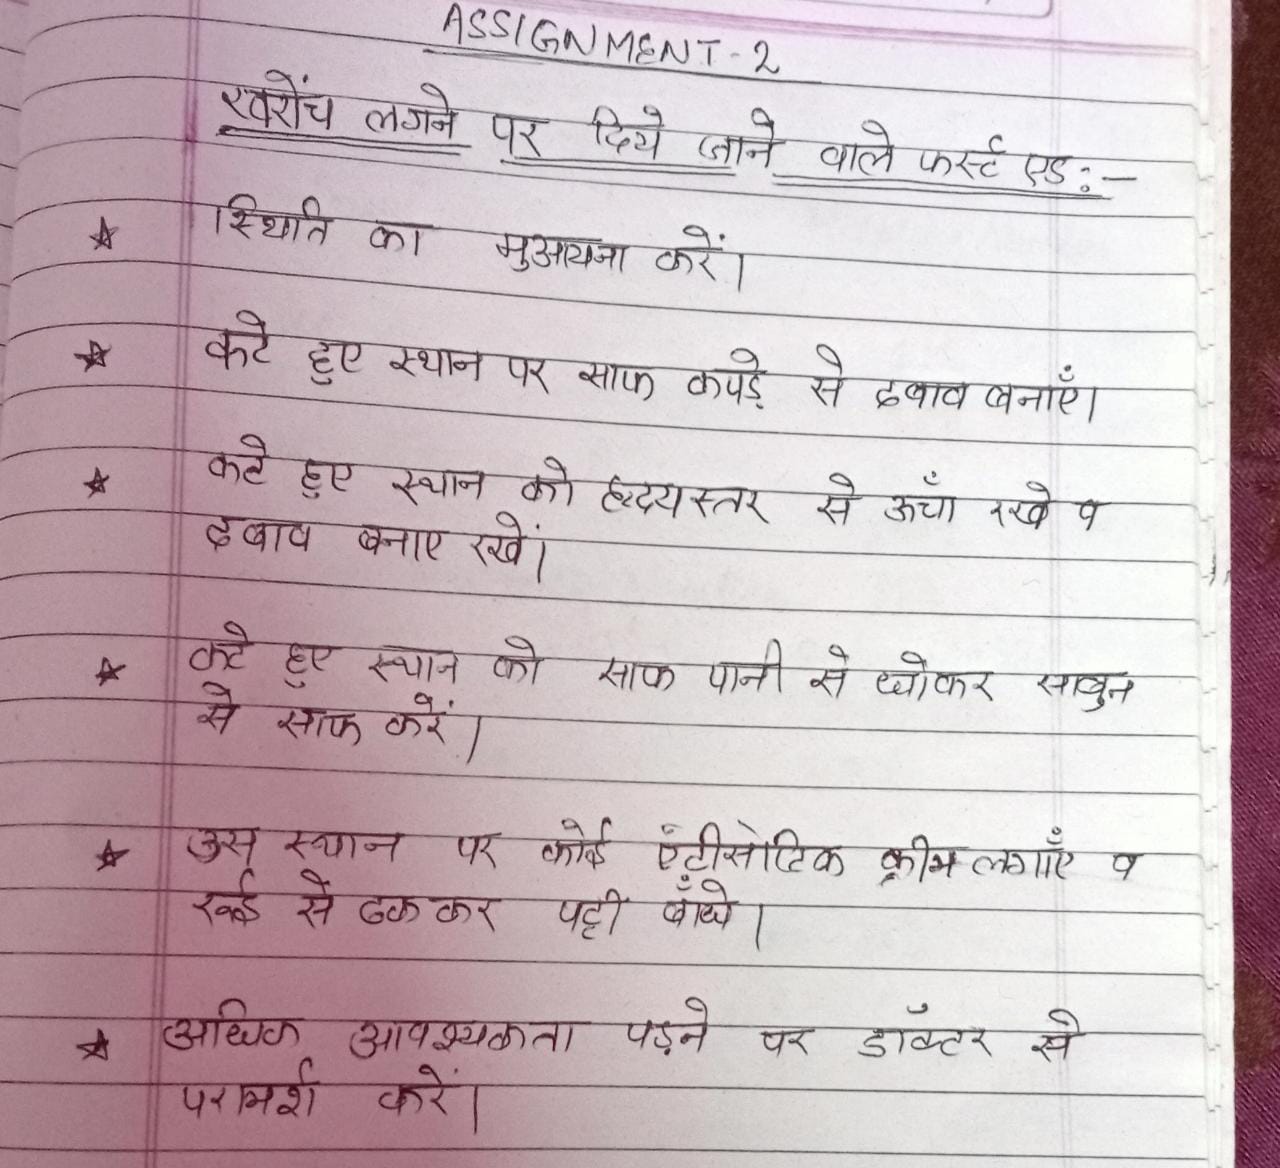 ASSIGNMENT-2
खरोंच लगने पर दिये जाने वाले फर्स्ट एड:-
☆ स्थिति का मुआयना करें।
☆ कटे हुए स्थान पर साफ कपड़े से दबाव बनाएँ।
☆ कटे हुए स्थान को हृदयस्तर से ऊँचा रखे व
दबाव बनाए रखें।
☆ कटे हुए स्थान को साफ पानी से धोकर साबुन
से साफ करें।
☆ उस स्थान पर कोई एंटीसेप्टिक क्रीम लगाएँ व
रुई से ढक कर पट्टी बाँधे।
☆ अधिक आवश्यकता पड़ने पर डॉक्टर से
परामर्श करें।